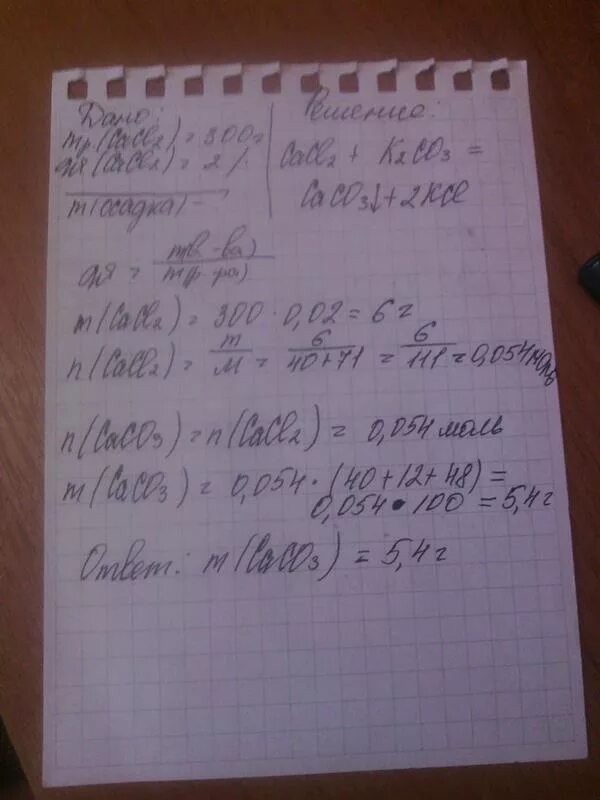 Дано:
mр.(CaCl₂) = 300г
ωя(CaCl₂) = 2%
m(осадка) -
Решение:
CaCl₂ + K₂CO₃ =
CaCO₃↓ + 2KCl
ωя = m(в-ва) / m(р-ра)
m(CaCl₂) = 300 · 0,02 = 6г
n(CaCl₂) = m/M = 6/(40+71) = 6/111 = 0,054 моль
n(CaCO₃) = n(CaCl₂) = 0,054 моль
m(CaCO₃) = 0,054 · (40+12+48) =
0,054 · 100 = 5,4г
Ответ: m(CaCO₃) = 5,4г